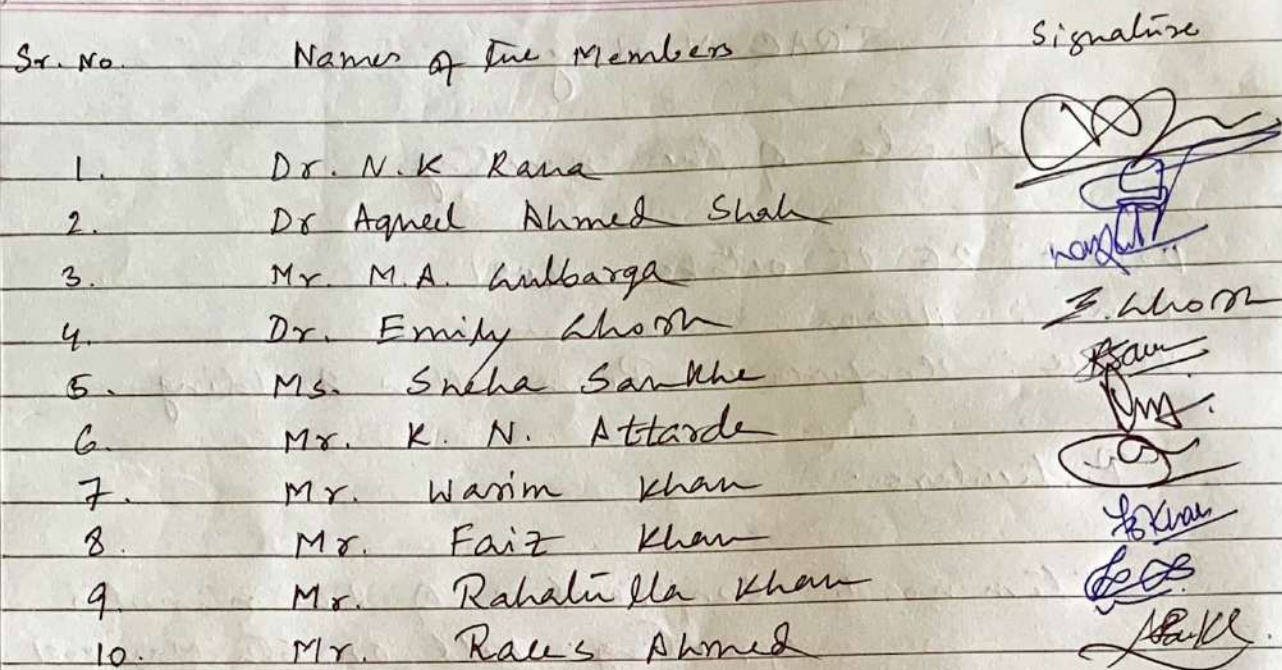 Sr. No. Names of the Members Signature
1. Dr. N.K Rana
2. Dr Aqueel Ahmed Shah
3. Mr. M.A. Gulbarga
4. Dr. Emily Ghosh E. Ghosh
5. Ms. Sneha Sankhe
6. Mr. K. N. Attarde
7. Mr. Wasim Khan
8. Mr. Faiz Khan Khan
9. Mr. Rahatulla Khan
10. Mr. Raees Ahmed